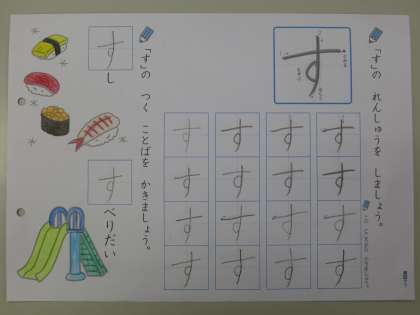 「す」の れんしゅうを しましょう。
す
す す す す
す す す す
す す す す
す す す す
「す」の つく ことばを かきましょう。
すし
すべりだい